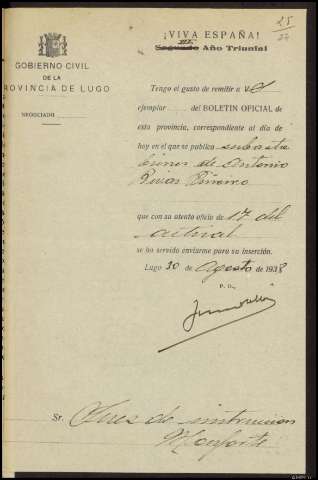 25
27
¡VIVA ESPAÑA!
III
Segundo Año Triunfal
GOBIERNO CIVIL
DE LA
PROVINCIA DE LUGO
NEGOCIADO
Tengo el gusto de remitir a vd
ejemplar del BOLETIN OFICIAL de
esta provincia, correspondiente al día de
hoy en el que se publica subasta
bienes de Antonio
Rivas Piñeiro
que con su atento oficio de 17 del
actual
se ha servido enviarme para su inserción.
Lugo 30 de Agosto de 1938
P. O.,
Sr. Juez de instruccion
Monforte